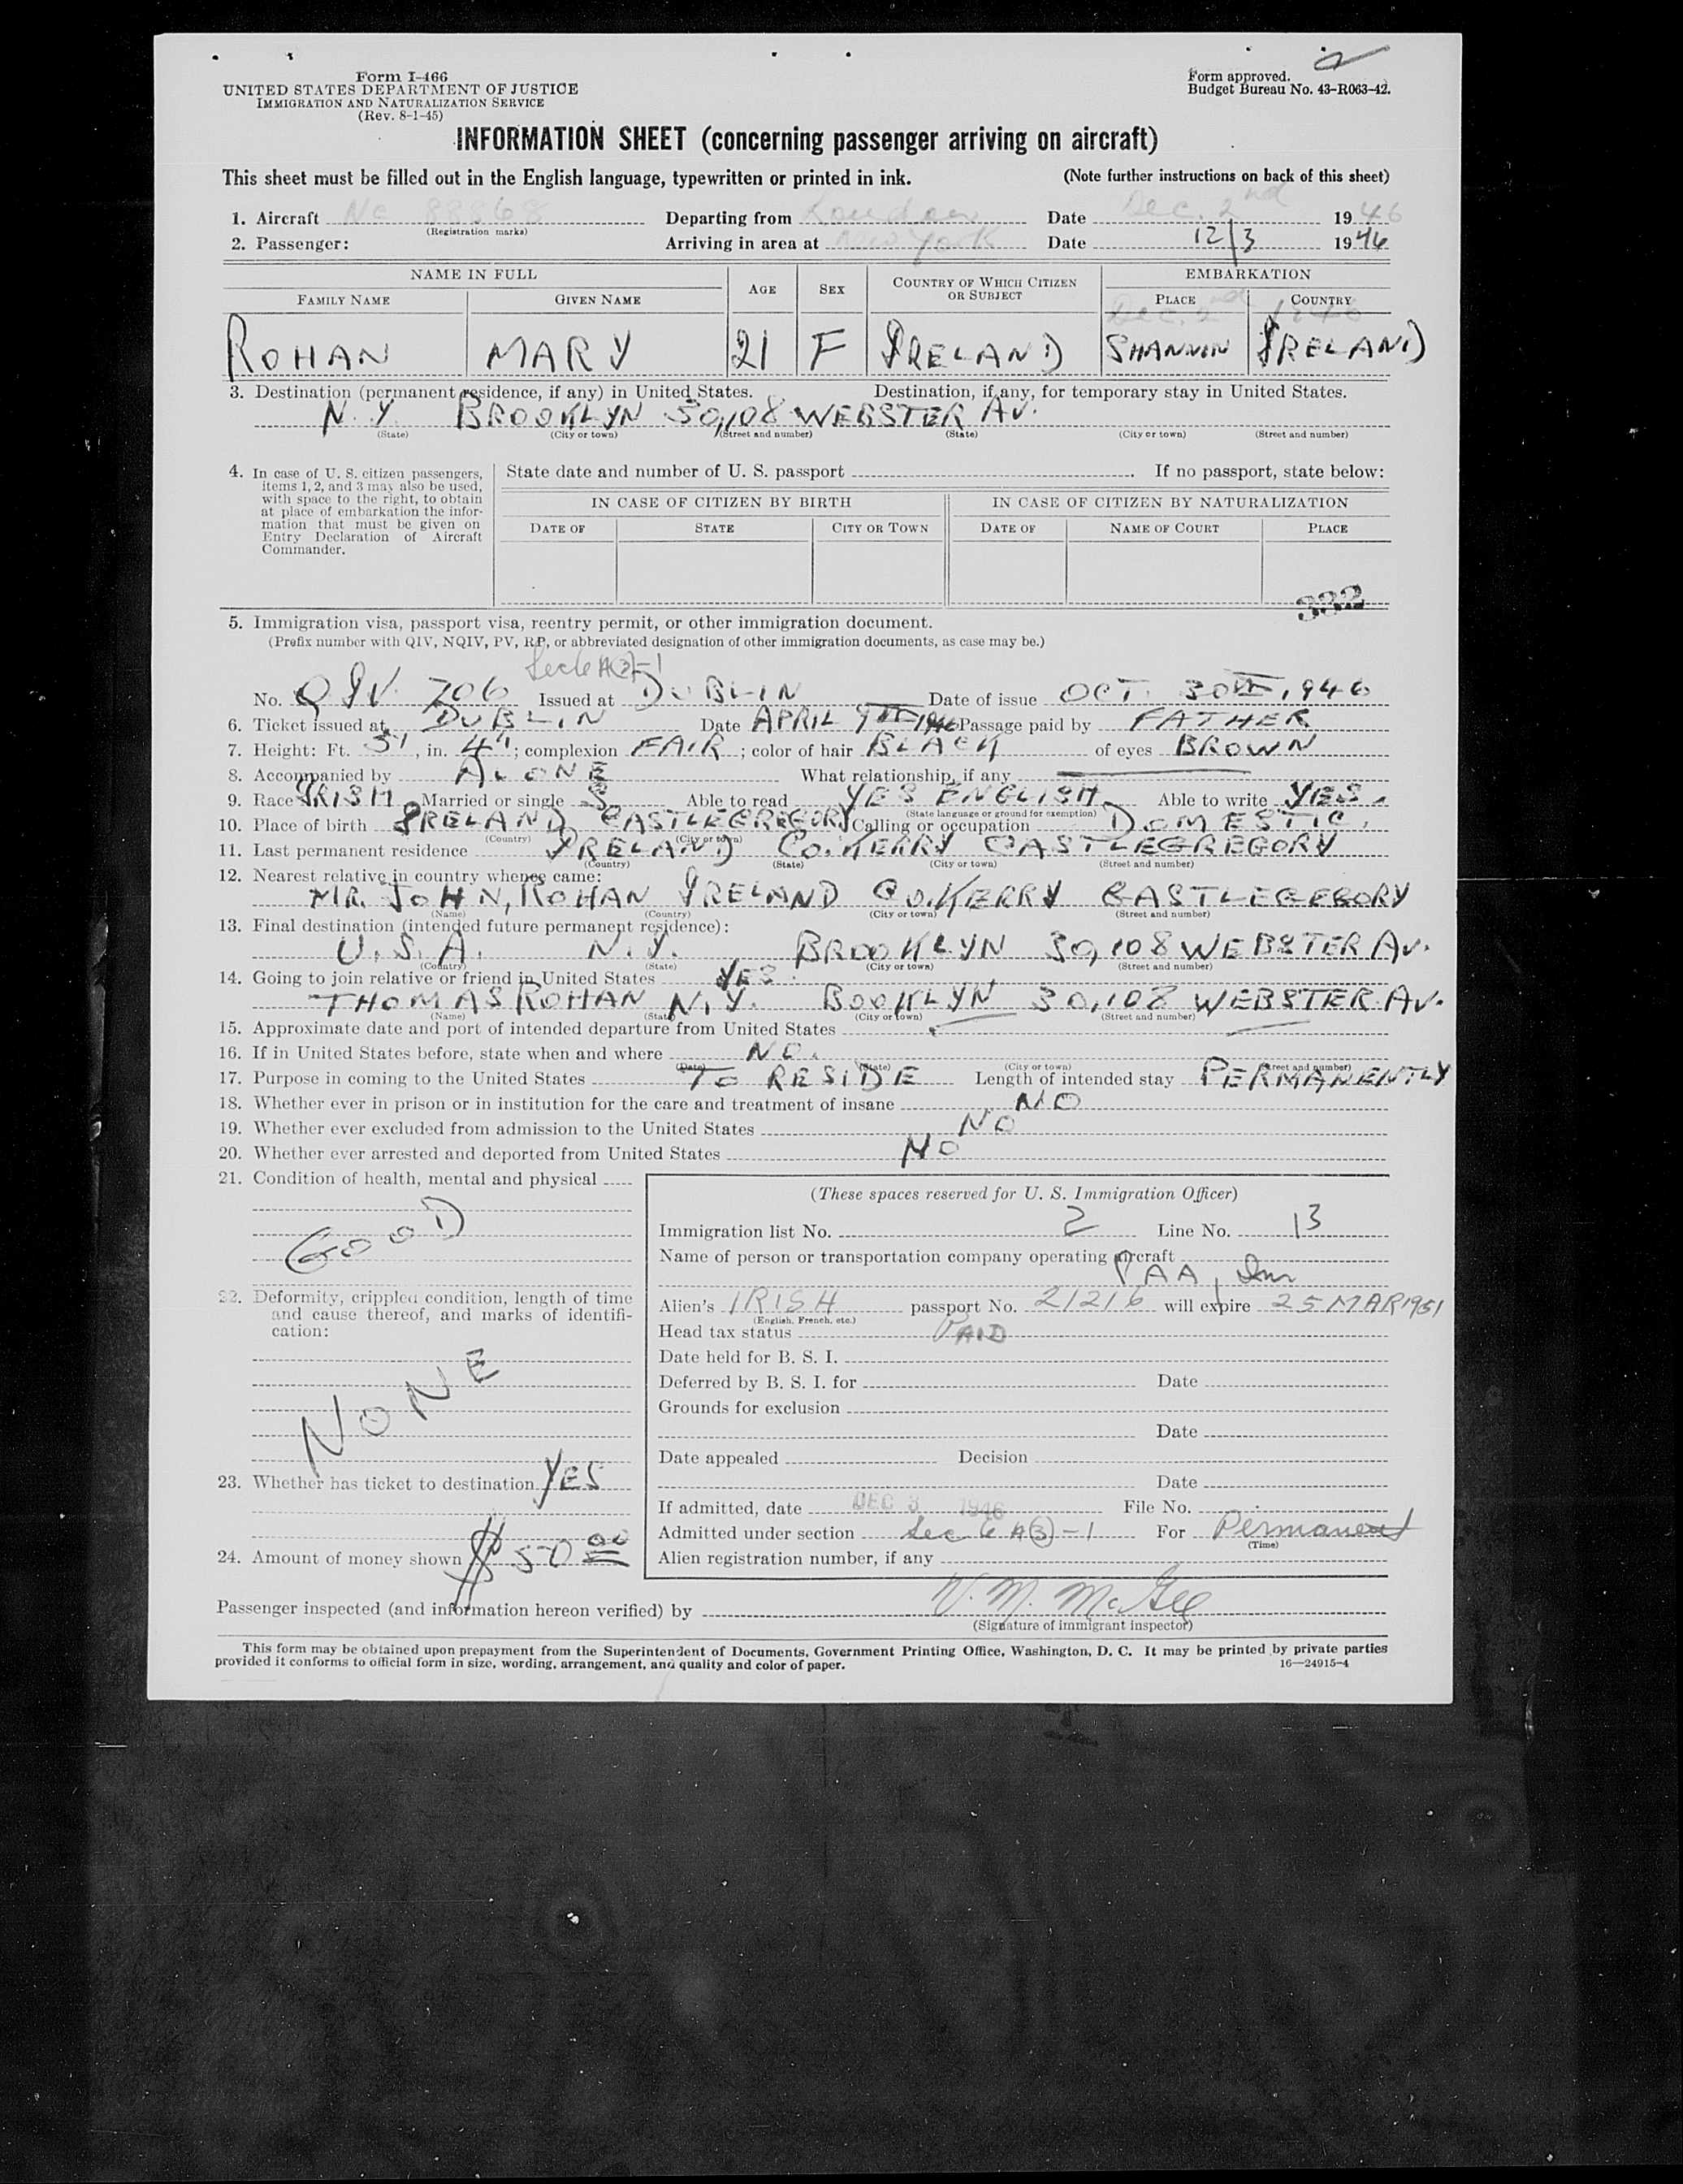 Form I-466
UNITED STATES DEPARTMENT OF JUSTICE
IMMIGRATION AND NATURALIZATION SERVICE
(Rev. 8-1-45)
Form approved.
Budget Bureau No. 43-R063-42.
INFORMATION SHEET (concerning passenger arriving on aircraft)
This sheet must be filled out in the English language, typewritten or printed in ink. (Note further instructions on back of this sheet)
1. Aircraft NC 88868 Departing from London Date Dec. 2nd 1946
(Registration marks)
2. Passenger: Arriving in area at New York Date 12/3 1946
NAME IN FULL AGE SEX COUNTRY OF WHICH CITIZEN OR SUBJECT EMBARKATION
FAMILY NAME GIVEN NAME PLACE COUNTRY
Dec. 2nd 1946
ROHAN MARY 21 F IRELAND SHANNON IRELAND
3. Destination (permanent residence, if any) in United States. Destination, if any, for temporary stay in United States.
N. Y. BROOKLYN 30,108 WEBSTER AV.
(State) (City or town) (Street and number) (State) (City or town) (Street and number)
4. In case of U. S. citizen passengers, items 1, 2, and 3 may also be used, with space to the right, to obtain at place of embarkation the information that must be given on Entry Declaration of Aircraft Commander.
State date and number of U. S. passport If no passport, state below:
IN CASE OF CITIZEN BY BIRTH IN CASE OF CITIZEN BY NATURALIZATION
DATE OF STATE CITY OR TOWN DATE OF NAME OF COURT PLACE
332
5. Immigration visa, passport visa, reentry permit, or other immigration document.
(Prefix number with QIV, NQIV, PV, RP, or abbreviated designation of other immigration documents, as case may be.)
Sec 6 A(3)-1
No. QIV. 706 Issued at DUBLIN Date of issue OCT. 30TH, 1946
6. Ticket issued at DUBLIN Date APRIL 9TH 1946 Passage paid by FATHER
7. Height: Ft. 5', in. 4"; complexion FAIR; color of hair BLACK of eyes BROWN
8. Accompanied by ALONE What relationship, if any
9. Race IRISH Married or single S Able to read YES ENGLISH Able to write YES.
(State language or ground for exemption)
10. Place of birth IRELAND CASTLEGREGORY Calling or occupation DOMESTIC.
(Country) (City or town)
11. Last permanent residence IRELAND CO. KERRY CASTLEGREGORY
(Country) (State) (City or town) (Street and number)
12. Nearest relative in country whence came:
MR. JOHN, ROHAN IRELAND CO. KERRY CASTLEGEGORY
(Name) (Country) (City or town) (Street and number)
13. Final destination (intended future permanent residence):
U. S. A. N. Y. BROOKLYN 30,108 WEBSTER AV.
(Country) (State) (City or town) (Street and number)
14. Going to join relative or friend in United States YES.
THOMAS ROHAN N. Y. BOOKLYN 30,108 WEBSTER AV.
(Name) (State) (City or town) (Street and number)
15. Approximate date and port of intended departure from United States
16. If in United States before, state when and where NO.
(Date) (State) (City or town) (Street and number)
17. Purpose in coming to the United States TO RESIDE Length of intended stay PERMANENTLY
18. Whether ever in prison or in institution for the care and treatment of insane NO
19. Whether ever excluded from admission to the United States NO
20. Whether ever arrested and deported from United States NO
21. Condition of health, mental and physical
GOOD
22. Deformity, crippled condition, length of time and cause thereof, and marks of identification:
NONE
23. Whether has ticket to destination YES
24. Amount of money shown $50 00
(These spaces reserved for U. S. Immigration Officer)
Immigration list No. 2 Line No. 13
Name of person or transportation company operating aircraft
PAA, Inc
Alien's IRISH passport No. 21216 will expire 25 MAR 1951
(English, French, etc.)
Head tax status PAID
Date held for B. S. I.
Deferred by B. S. I. for Date
Grounds for exclusion
Date
Date appealed Decision
Date
If admitted, date DEC 3 1946 File No.
Admitted under section Sec 6 A(3)-1 For Permanent
(Time)
Alien registration number, if any
Passenger inspected (and information hereon verified) by V. M. McGee
(Signature of immigrant inspector)
This form may be obtained upon prepayment from the Superintendent of Documents, Government Printing Office, Washington, D. C. It may be printed by private parties
provided it conforms to official form in size, wording, arrangement, and quality and color of paper. 16—24915-4